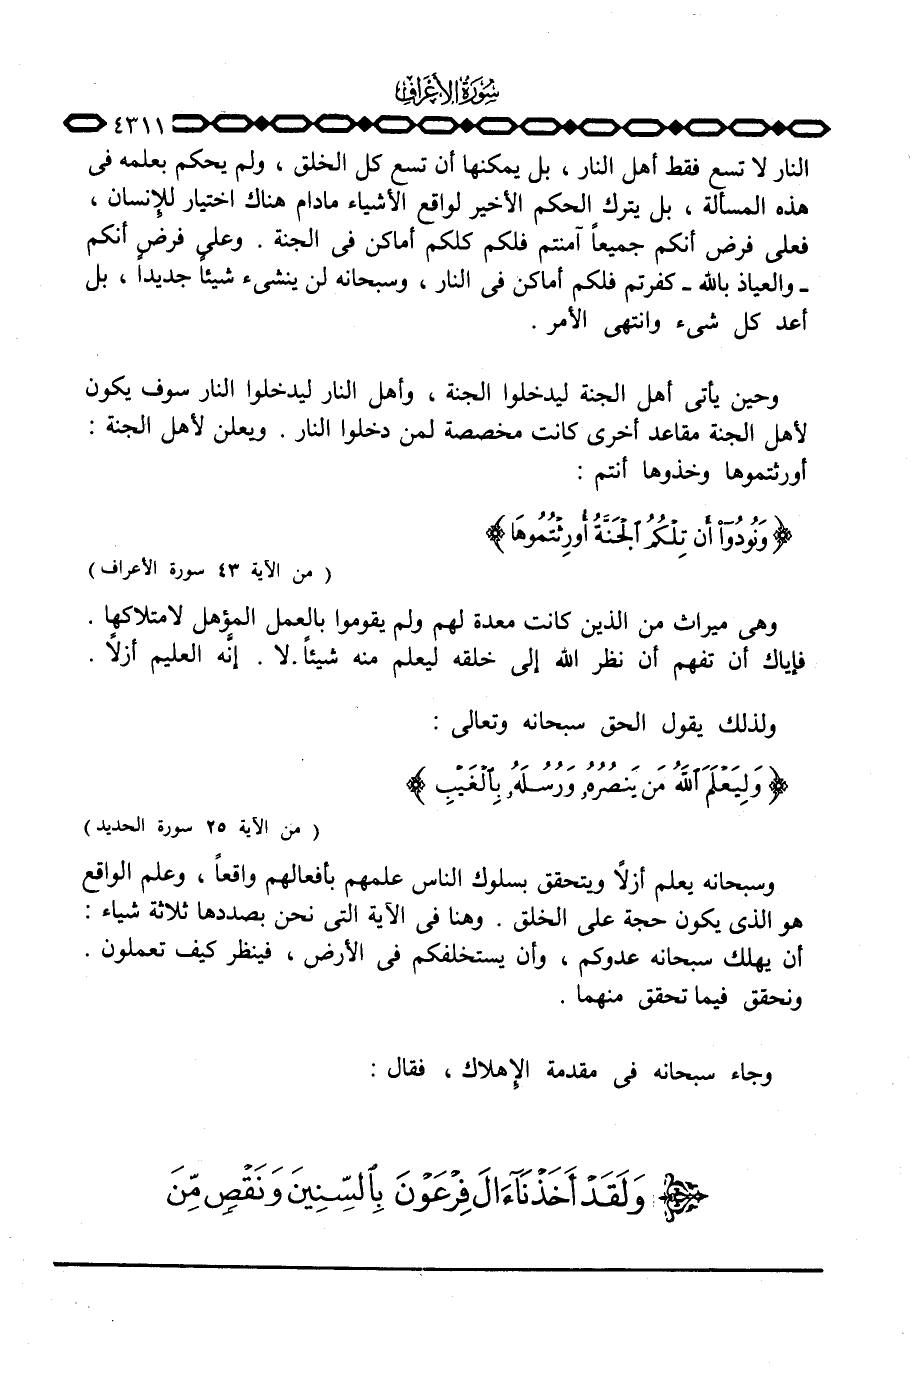 سُورَةُ الأَعْرَافِ
٤٣١١
النار لا تسع فقط أهل النار ، بل يمكنها أن تسع كل الخلق ، ولم يحكم بعلمه فى
هذه المسألة ، بل يترك الحكم الأخير لواقع الأشياء مادام هناك اختيار للإنسان ،
فعلى فرض أنكم جميعاً آمنتم فلكم كلكم أماكن فى الجنة . وعلى فرض أنكم
ـ والعياذ بالله ـ كفرتم فلكم أماكن فى النار ، وسبحانه لن ينشىء شيئاً جديداً ، بل
أعد كل شىء وانتهى الأمر .
وحين يأتى أهل الجنة ليدخلوا الجنة ، وأهل النار ليدخلوا النار سوف يكون
لأهل الجنة مقاعد أخرى كانت مخصصة لمن دخلوا النار . ويعلن لأهل الجنة :
أورثتموها وخذوها أنتم :
﴿ وَنُودُوٓا۟ أَن تِلْكُمُ ٱلْجَنَّةُ أُورِثْتُمُوهَا ﴾
( من الآية ٤٣ سورة الأعراف )
وهى ميراث من الذين كانت معدة لهم ولم يقوموا بالعمل المؤهل لامتلاكها .
فإياك أن تفهم أن نظر الله إلى خلقه ليعلم منه شيئاً . لا . إنَّه العليم أزلاً .
ولذلك يقول الحق سبحانه وتعالى :
﴿ وَلِيَعْلَمَ ٱللَّهُ مَن يَنصُرُهُۥ وَرُسُلَهُۥ بِٱلْغَيْبِ ﴾
( من الآية ٢٥ سورة الحديد )
وسبحانه يعلم أزلاً ويتحقق بسلوك الناس علمهم بأفعالهم واقعاً ، وعلم الواقع
هو الذى يكون حجة على الخلق . وهنا فى الآية التى نحن بصددها ثلاثة شياء :
أن يهلك سبحانه عدوكم ، وأن يستخلفكم فى الأرض ، فينظر كيف تعملون .
ونحقق فيما تحقق منهما .
وجاء سبحانه فى مقدمة الإهلاك ، فقال :
وَلَقَدْ أَخَذْنَآ ءَالَ فِرْعَوْنَ بِٱلسِّنِينَ وَنَقْصٍ مِّنَ